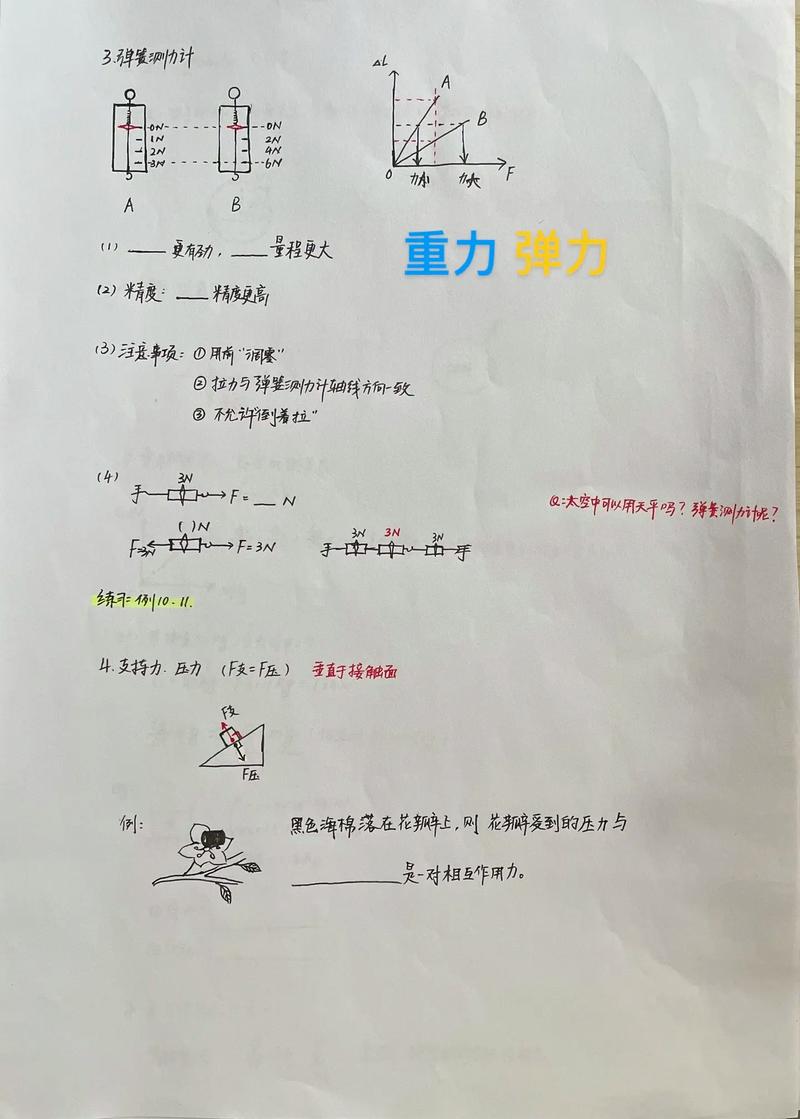 3.弹簧测力计
0N 1N 2N 3N
A
0N 2N 4N 6N
B
ΔL
A
B
0 力小 力大 F
(1) ____ 更有劲，____ 量程更大
重力 弹力
(2) 精度：____ 精度更高
(3) 注意事项：① 用前“调零”
② 拉力与弹簧测力计轴线方向一致
③ 不允许“倒着拉”
(4)
3N
手 F=__N
( )N
F=3N F=3N
3N 3N 3N
手 手
Q：太空中可以用天平吗？弹簧测力计呢？
练习：例10.11.
4.支持力.压力 （F支=F压） 垂直于接触面
F支
F压
例：
黑色海棉落在花瓣上，则 花瓣受到的压力与
____________是一对相互作用力。